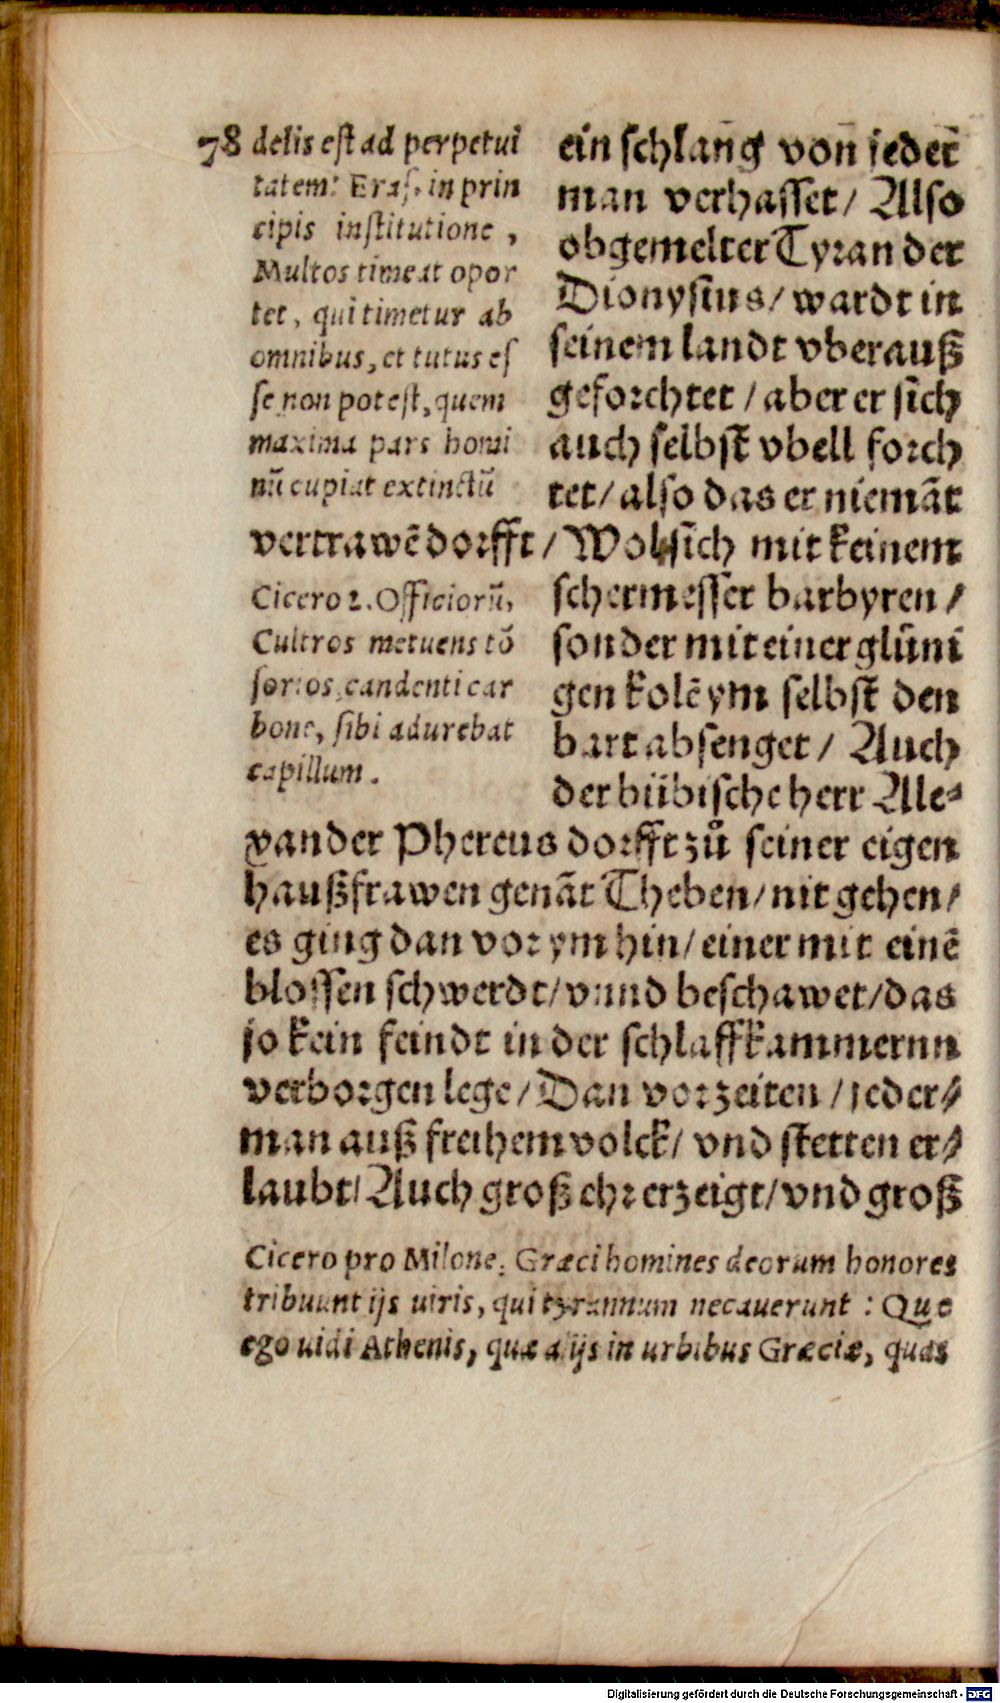 78
delis est ad perpetui
tatem: Eras. in prin
cipis institutione,
Multos timeat opor
tet, qui timetur ab
omnibus, et tutus es
se non potest, quem
maxima pars homi
nū cupiat extinctū
ein schlang̃ von̄ jeder̃
man verhasset/ Also
obgemelter Tyran der
Dionysius/ wardt in
seinem landt vberauß
geforchtet / aber er sich
auch selbst vbell forch
tet/ also das er niemāt
vertrawē dorfft/ Wolt sich mit keinem
Cicero 2. Officiorū,
Cultros metuens tō
sorios, candenti car
bone, sibi adurebat
capillum.
schermesser barbyren /
sonder mit einer glüni
gen kolē ym selbst den
bart absenget / Auch
der bübische herr Ale⸗
xander Phereus dorfft zů seiner eigen
haußfrawen genāt Theben/ nit gehen/
es ging dan vor ym hin/ einer mit einē
blossen schwerdt/ vnnd beschawet/ das
jo kein feindt in der schlaffkammernn
verborgen lege/ Dan vorzeiten / jeder⸗/
man auß freihem volck/ vnd stetten er⸗/
laubt/ Auch groß ehr erzeigt/ vnd groß
Cicero pro Milone. Græci homines deorum honores
tribuunt ijs uiris, qui tyrannum necauerunt : Que
ego uidi Athenis, quæ alijs in urbibus Græciæ, quas
Digitalisierung gefördert durch die Deutsche Forschungsgemeinschaft - DFG